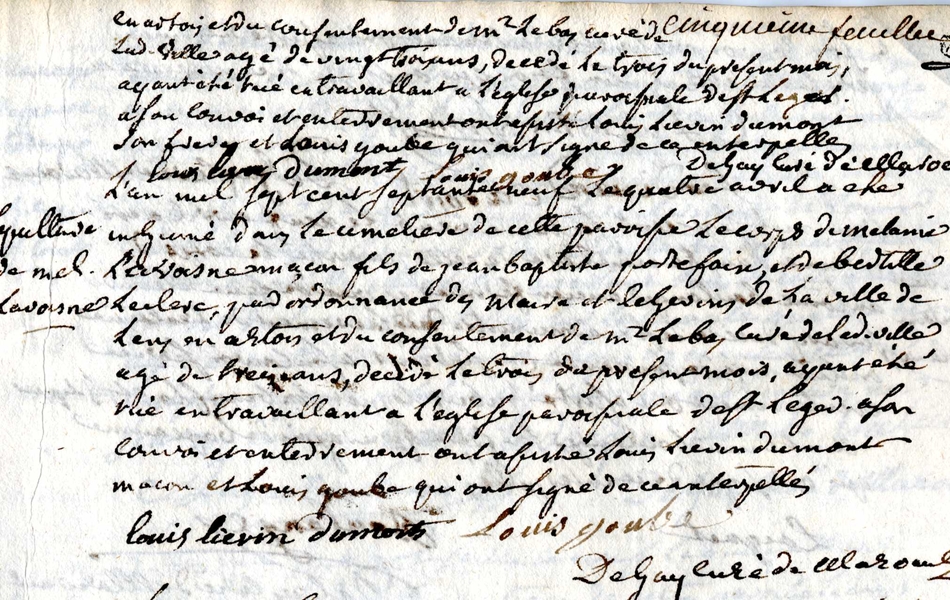 en artois et du consentement de mr. Lebas curé de Cinquieme feuille
lad. ville agé de vingt trois ans, decedé le trois du present mois,
ayant été tué en travaillant a l'eglise paroissiale de st Leger.
a son convoi et enterrement ont assisté Louis Lievin dumont
son frere et Louis goube qui ont signé de ce interpellés
Louis lievin dumont Louis goube DeHay curé de
L'an mel sept cent septante neuf le quatre avril a eté
inhumé dans le cimetiere de cette paroisse le corps de melanie
sepulture
de mel.
Lavoisne
Lavoisne maçon fils de jean baptiste portefaix, et de bertille
Leclerc, par ordonnance des Maire et Echevins de La ville de
Lens en artois et du consentement de mr Lebas Curé de lad. ville
agé de treize ans, decedé le trois du present mois, ayant eté
tué en travaillant a l'eglise paroissiale de st Leger. a son
convoi et enterrement ont assisté Louis Lievin dumont
macon et Louis goube qui ont signé de ce interpellés
louis lievin dumont Louis goube
DeHay curé de